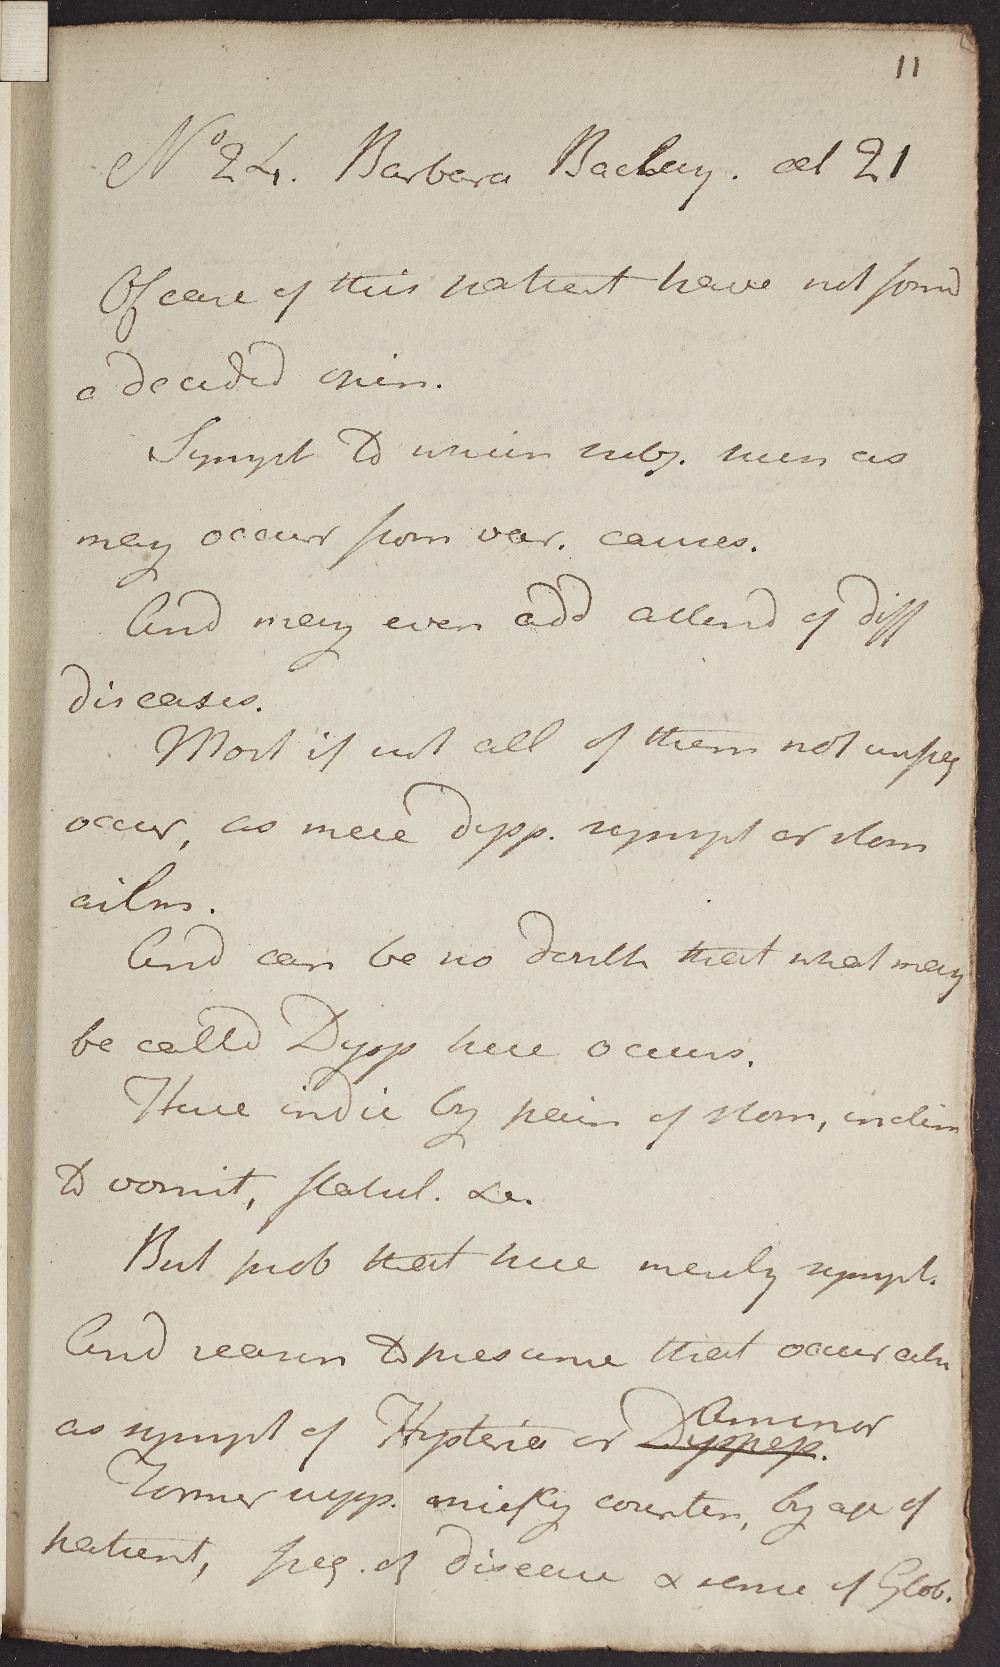 11
No 24. Barbara Backay. aet 21
Of case of this patient have not formd
a decided opin.
Sympt to which subj. such as
may occur from var. causes.
And may even add attend of diff
diseases.
Most if not all of them not unfreq
occur, as mere dysp. sympt or stom
ailm.
And can be no doubt that what may
be called Dysp here occurs.
Here indic by pain of stom, inclin
to vomit, flatul. &c.
But prob that here merely sympt.
And reason to presume that occur eith
as sympt of Hysteria or Dyspep. Amenor
Former supp. chiefly counten, by age of
patient, freq. of disease & sense of Glob.